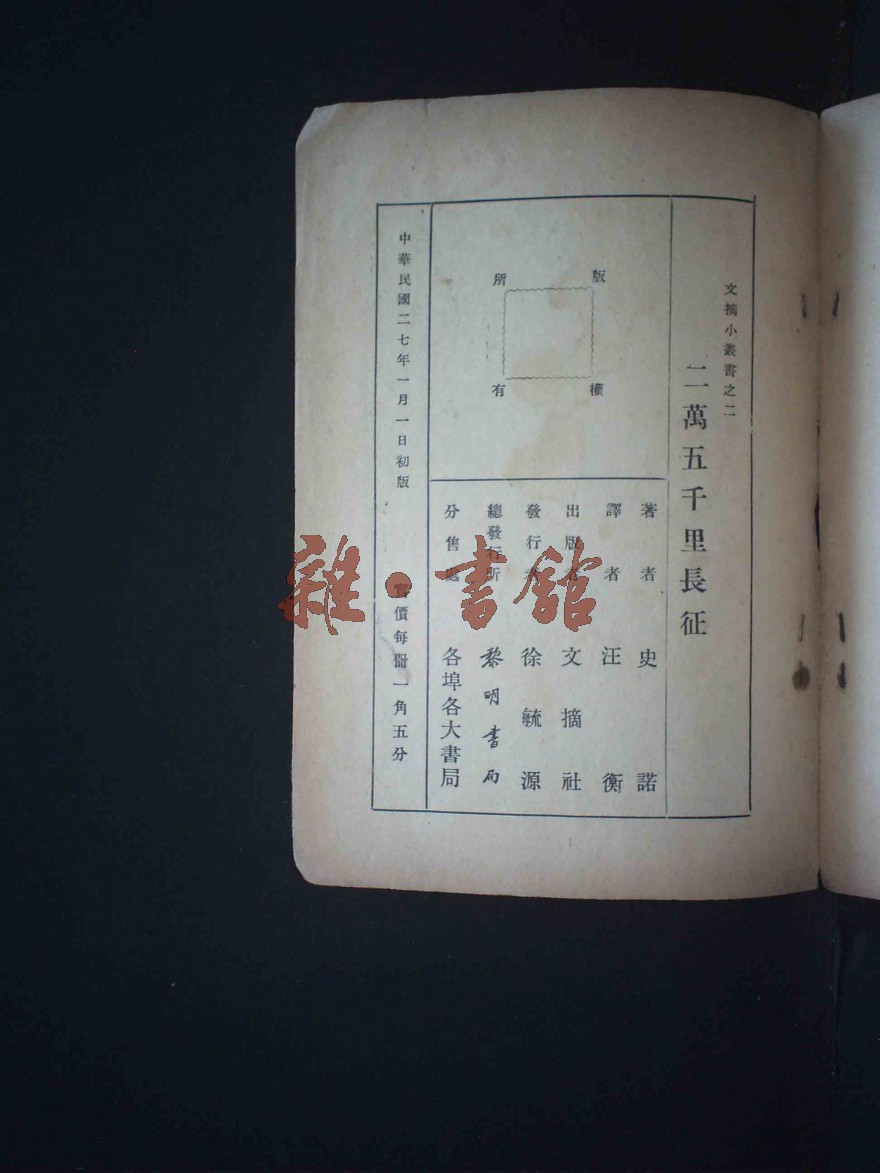 文摘小叢書之二
二萬五千里長征
版權所有
著者 史諾
譯者 汪衡
出版者 文摘社
發行者 徐毓源
總發行所 黎明書局
分售處 各埠各大書局
中華民國二七年一月一日初版 實價每冊一角五分
雜·書館